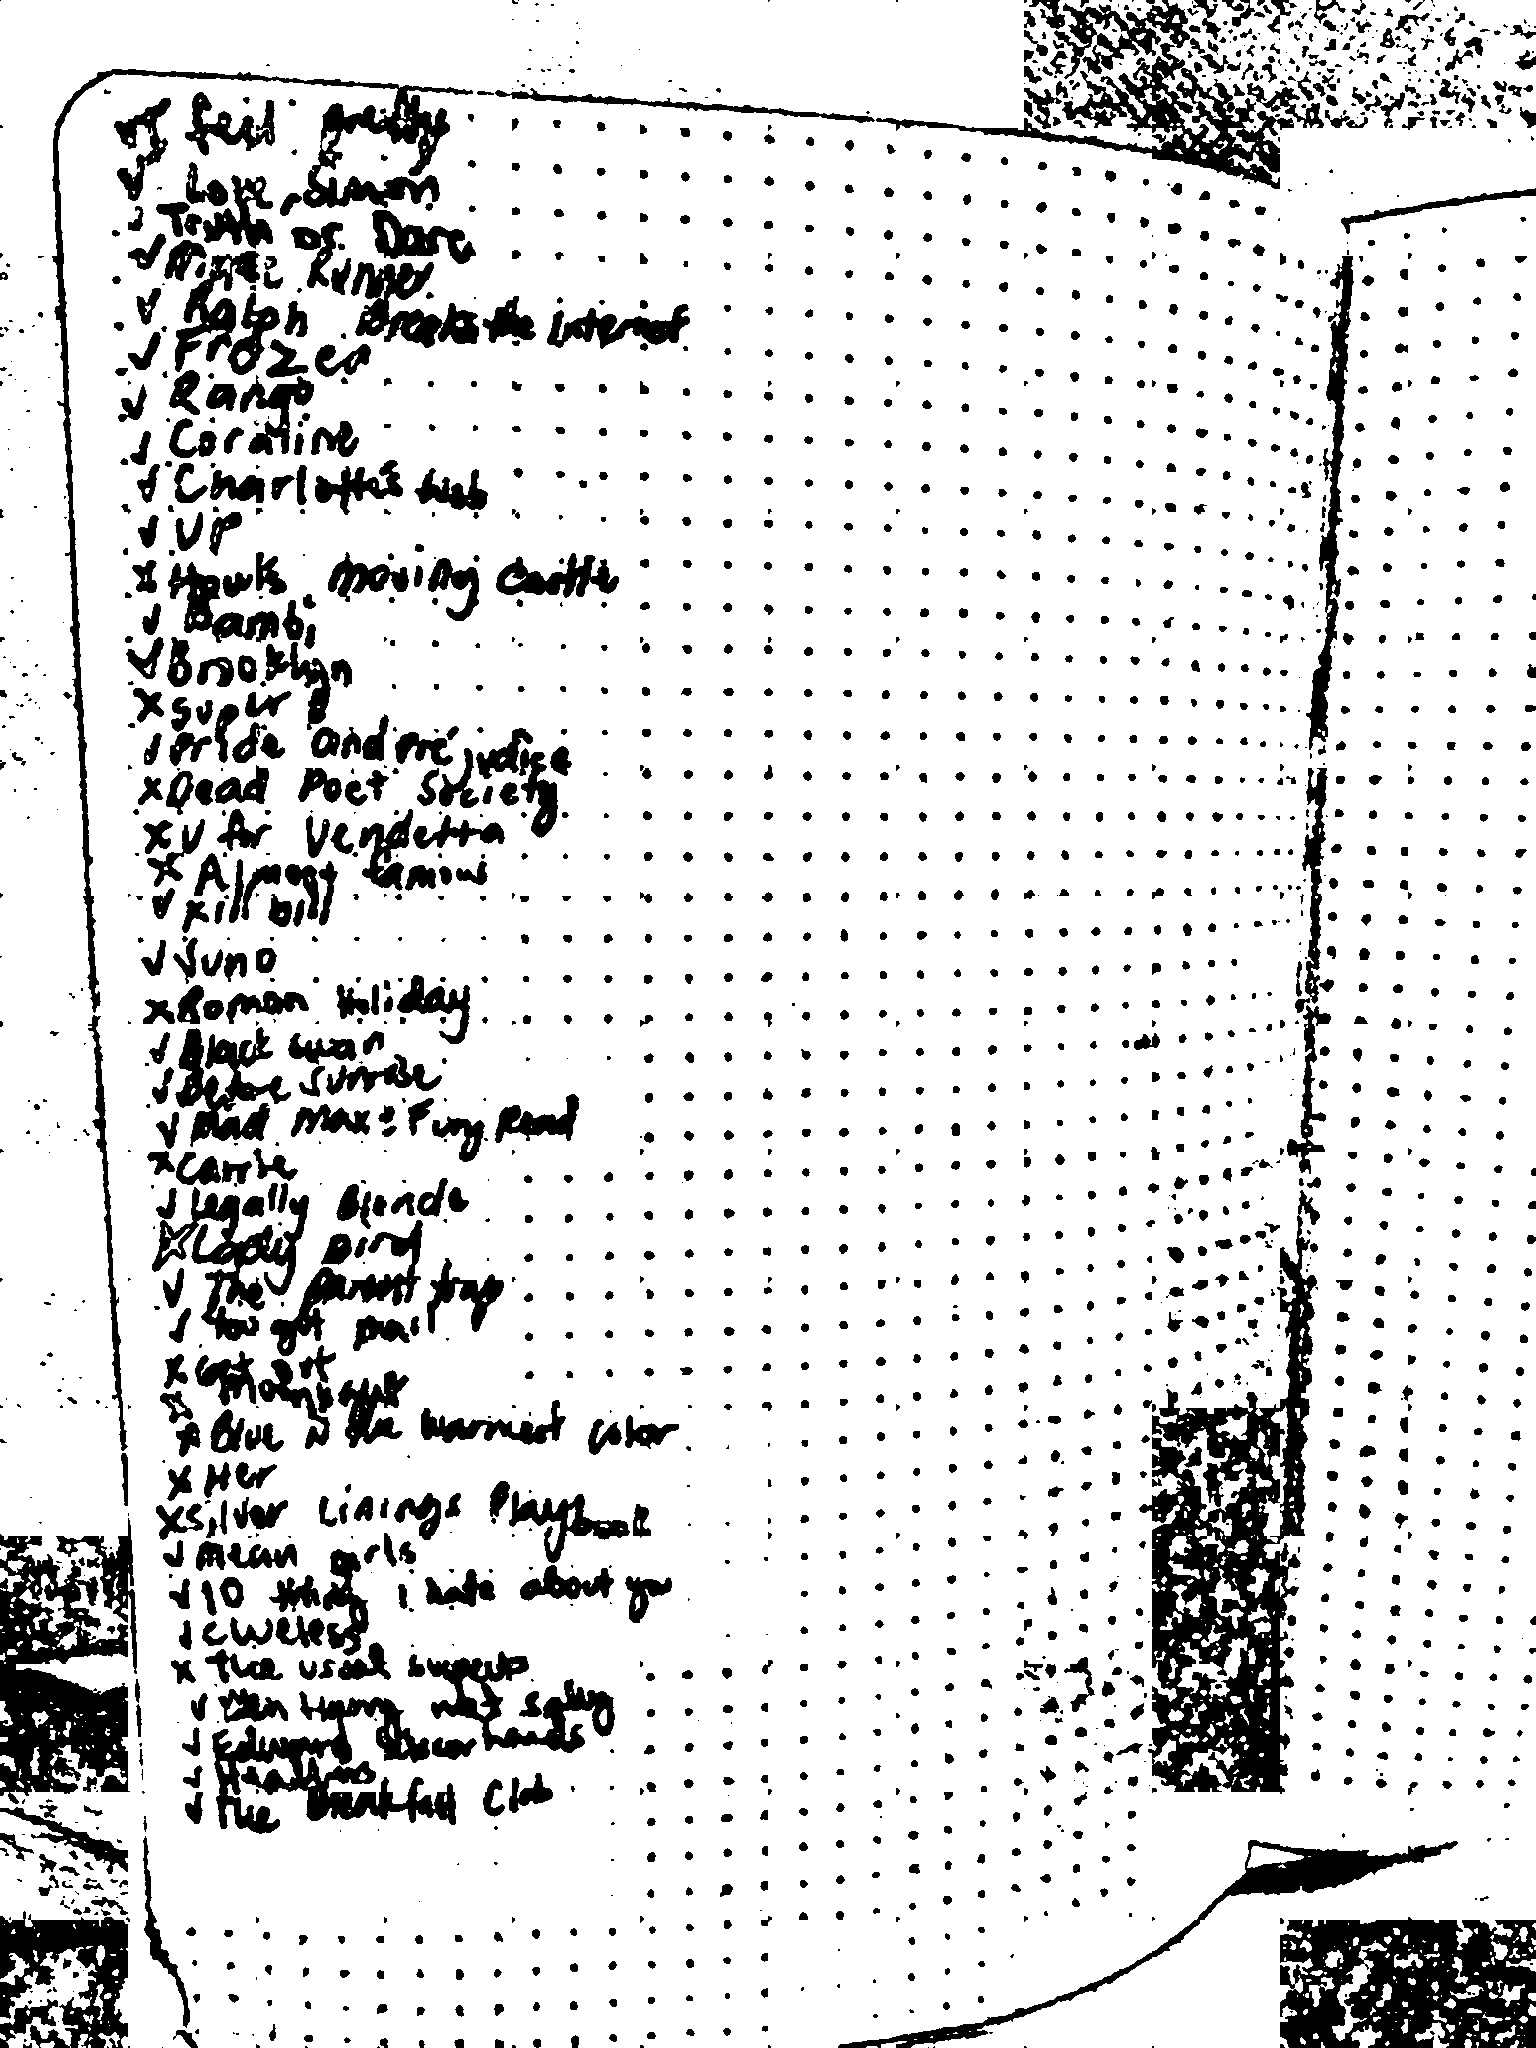 ✓ I feel pretty
✓ Love, Simon
✓ Truth or Dare
✓ Runner
✓ Ralph Breaks the Internet
✓ Frozen
✓ Rango
✓ Coraline
✓ Charlotte's Web
✓ UP
x Howl's moving Castle
✓ Bambi
✓ Brooklyn
x super 8
✓ Pride and Prejudice
x Dead Poet Society
x V for Vendetta
x Almost famous
✓ Kill bill
✓ Juno
x Roman Holiday
✓ Black swan
✓ Before sunrise
✓ Mad Max: Fury Road
x Carrie
✓ Legally Blonde
☆ Lady Bird
✓ The parent trap
✓ You got mail
x Get out
☆ Moonlight
x Blue is the warmest color
x Her
x Silver Linings Playbook
✓ mean girls
✓ 10 things i hate about you
✓ clueless
x The usual suspects
✓ When Harry met sally
✓ Edward Scissorhands
✓ Heathers
✓ The Breakfast Club